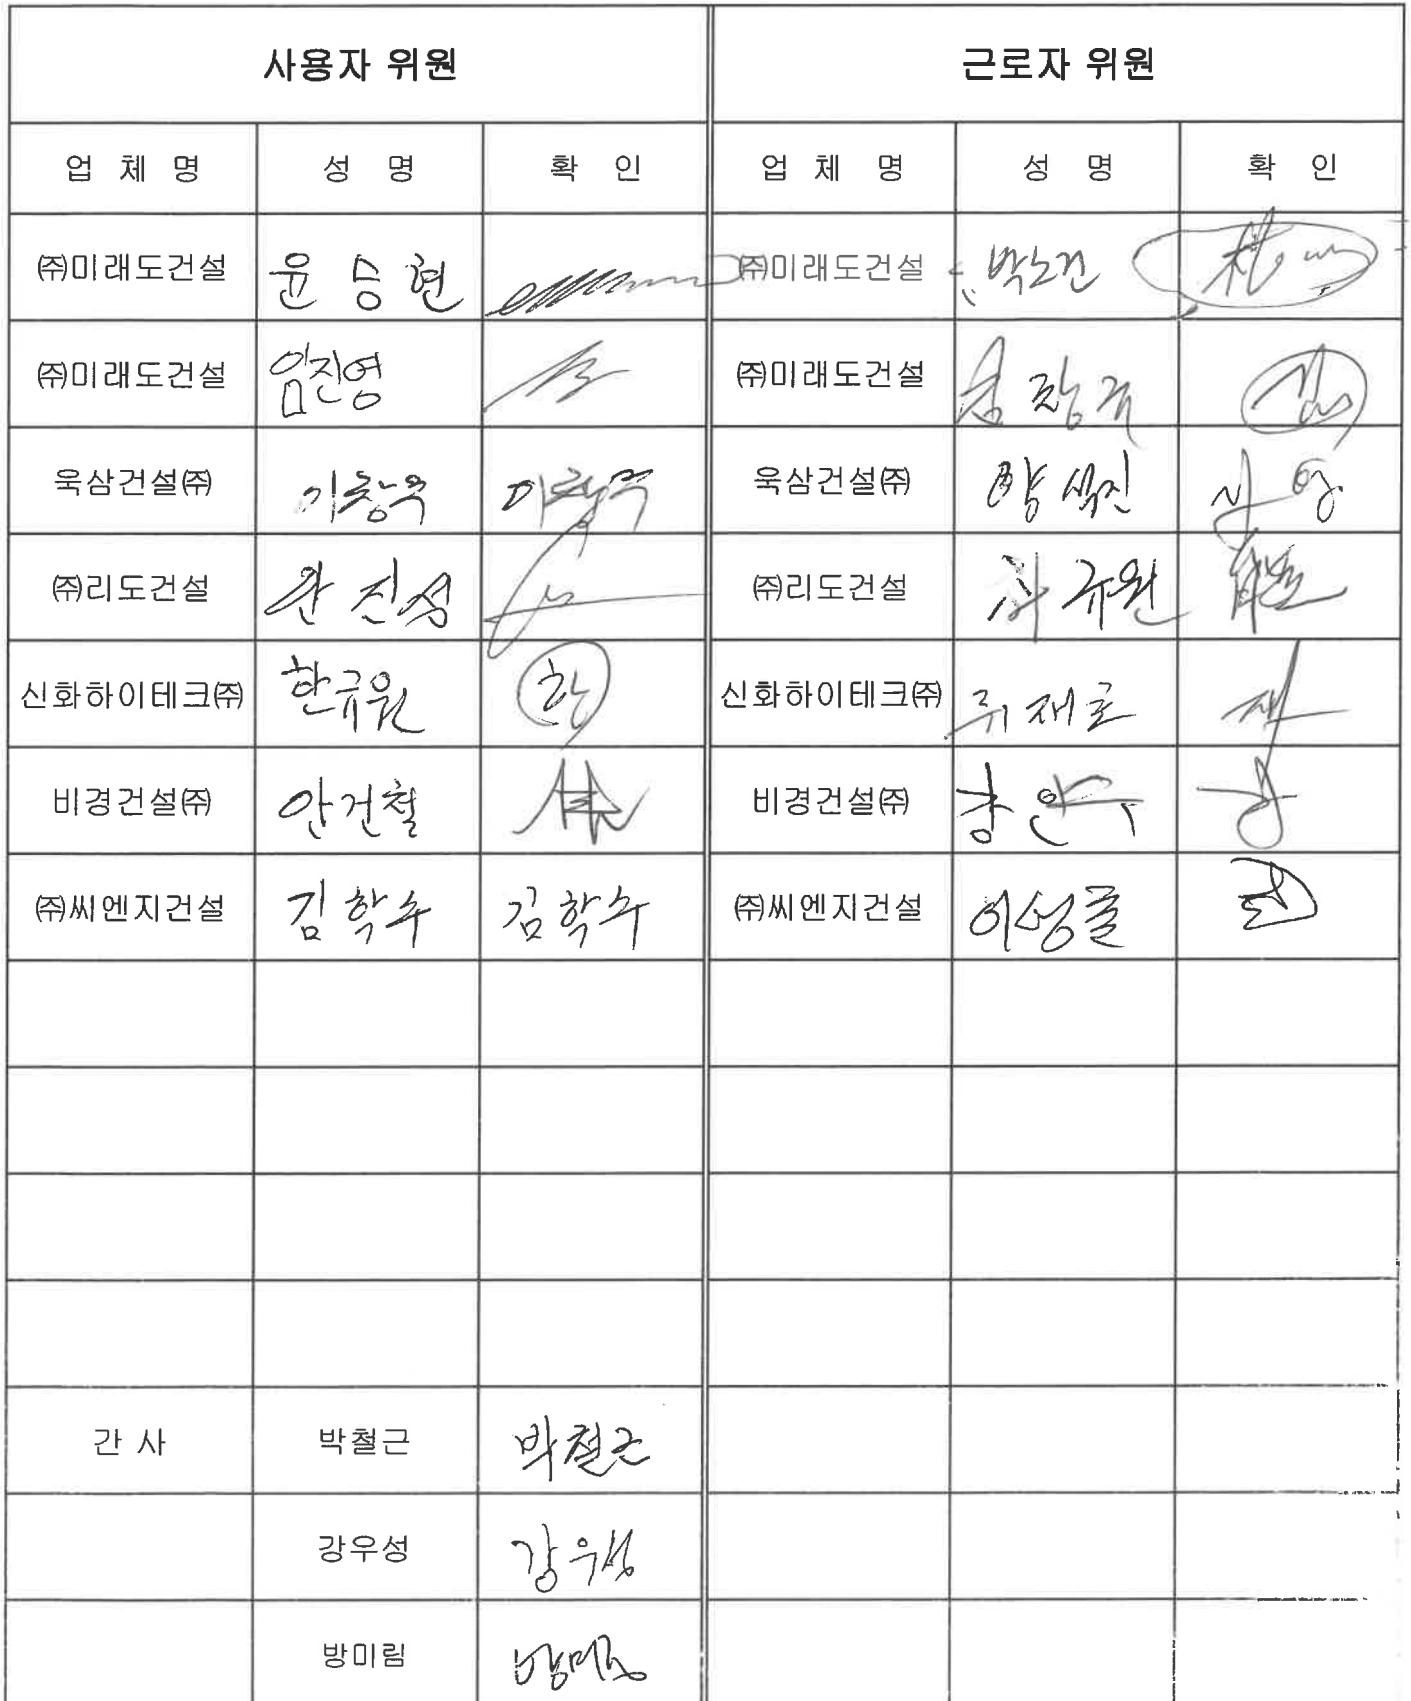 사용자 위원 근로자 위원
업 체 명 성 명 확 인 업 체 명 성 명 확 인
㈜미래도건설 윤승현 ㈜미래도건설 박노건
㈜미래도건설 임진영 ㈜미래도건설
욱삼건설㈜ 이창우 이창우 욱삼건설㈜ 양석진
㈜리도건설 안진성 ㈜리도건설
신화하이테크㈜ 한규원 한 신화하이테크㈜
비경건설㈜ 안건철 비경건설㈜
㈜씨엔지건설 김학수 김학수 ㈜씨엔지건설
간 사 박철근 박철근
강우성 강우성
방미림 방미림